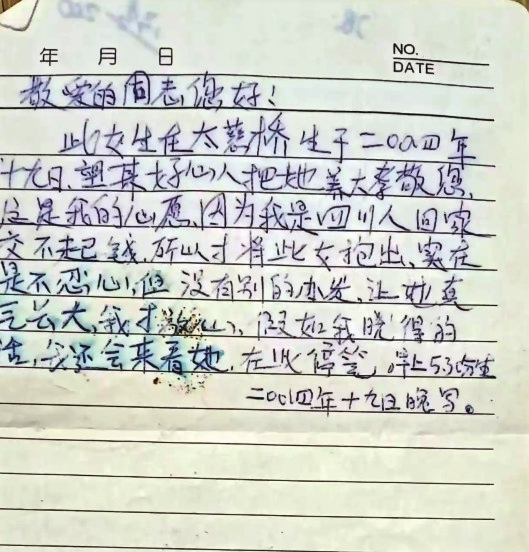 年 月 日 NO.
DATE
敬爱的同志您好！
此女生在太慈桥生于二00四年
十九日,望某好心人把她养大孝敬您,
这是我的心愿,因为我是四川人回家
交不起已钱,所以才将此女抱出,实在
是不忍心,但没有别的办法,让她直
长大,我才放心,假如我晓得的
话,我还会来看她,在此停笔,早上5.30分生
二00四年十九日晚写。